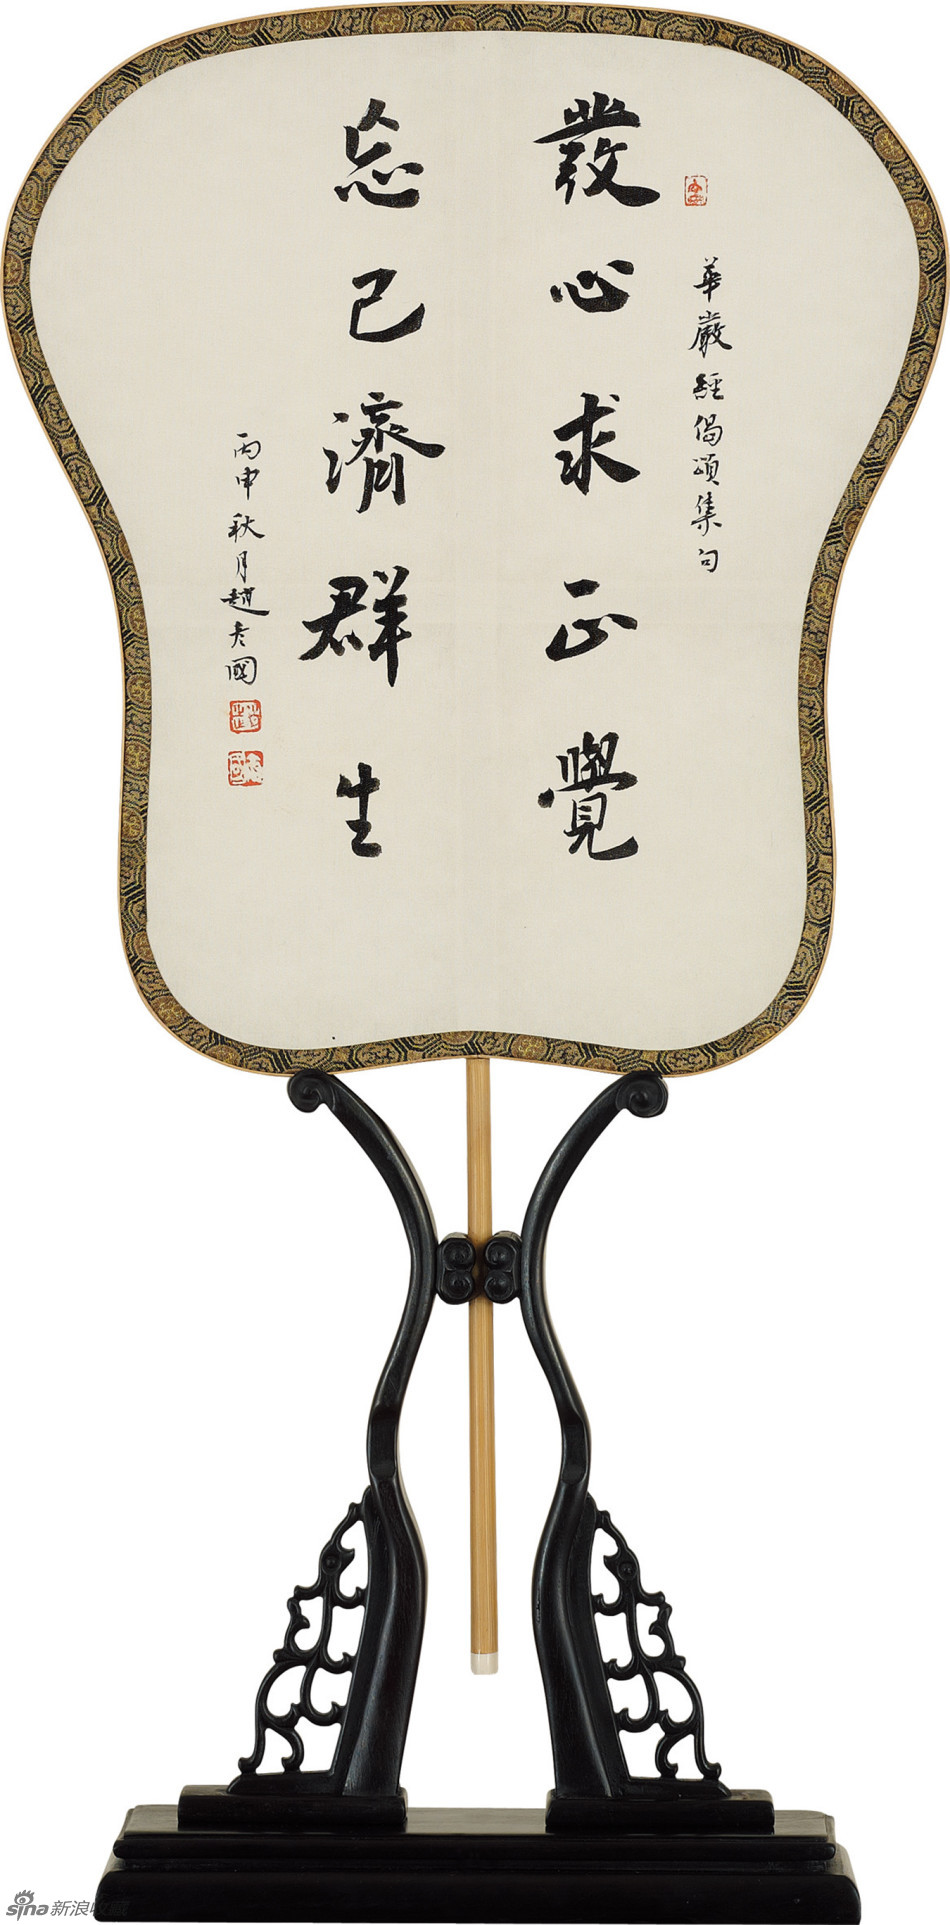 華嚴經偈頌集句
發心求正覺
忘己濟群生
丙申秋月趙彥國
sina新浪收藏